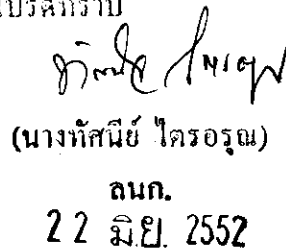 โปรดทราบ
(นางทัศนีย์ ไตรอรุณ)
ลนก.
22 มิ.ย. 2552